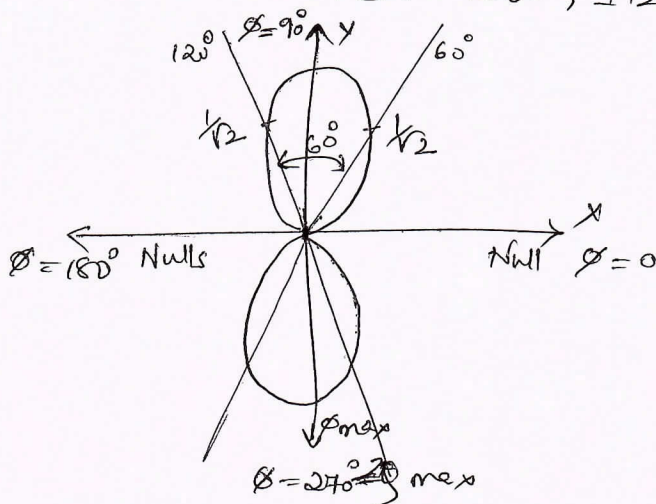 φ=90° Y
120° 60°
1/√2 60° 1/√2
X
φ=180° Nulls Null φ=0
φmax
φ=270° max